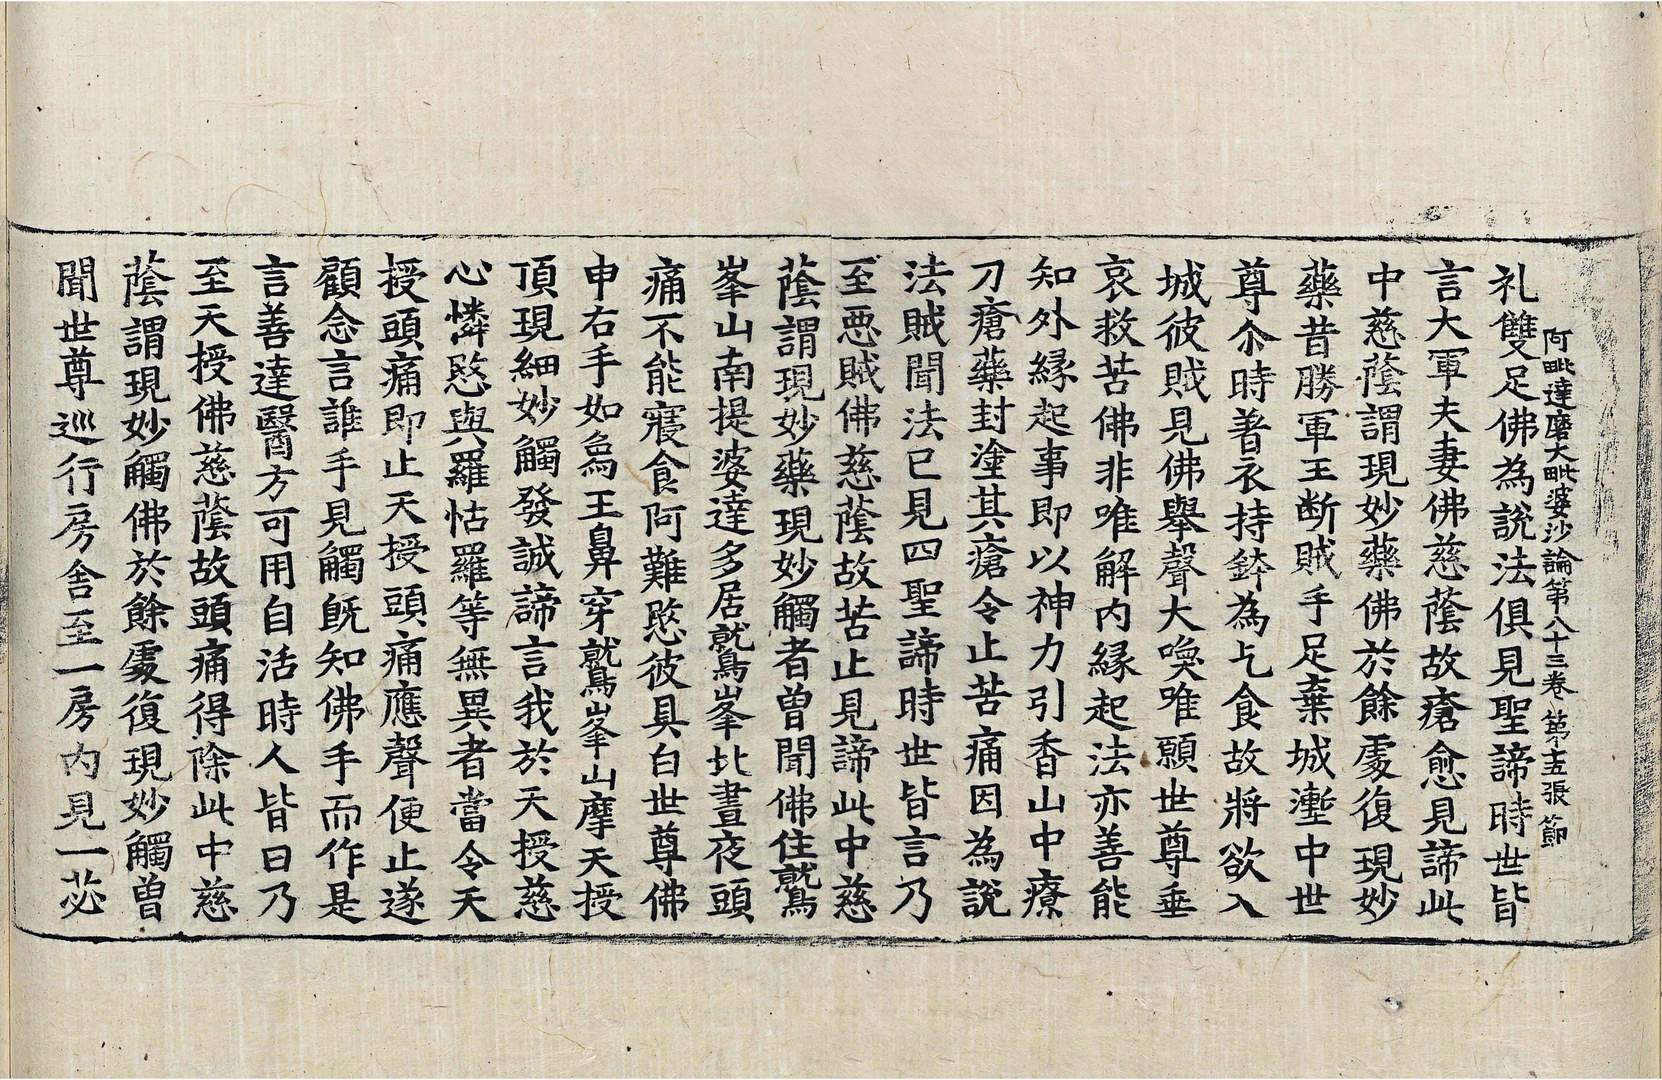 阿毗達磨大毗婆沙論第八十三卷 第十五張 節
礼雙足佛為說法俱見聖諦時世皆
言大軍夫妻佛慈蔭故瘡愈見諦此
中慈蔭謂現妙藥佛於餘處復現妙
藥昔勝軍王断賊手足棄城壍中世
尊尒時著衣持鉢為乞食故將欲入
城彼賊見佛舉聲大喚唯願世尊垂
哀救苦佛非唯解內緣起法亦善能
知外緣起事即以神力引香山中療
刀瘡藥封塗其瘡令止苦痛因為說
法賊聞法已見四聖諦時世皆言乃
至惡賊佛慈蔭故苦止見諦此中慈
蔭謂現妙藥現妙觸者曾聞佛住鷲
峯山南提婆達多居鷲峯北晝夜頭
痛不能寢食阿難愍彼具白世尊佛
申右手如象王鼻穿鷲峯山摩天授
頂現細妙觸發誠諦言我於天授慈
心憐愍與羅怙羅等無異者當令天
授頭痛即止天授頭痛應聲便止遂
顧念言誰手見觸既知佛手而作是
言善達醫方可用自活時人皆曰乃
至天授佛慈蔭故頭痛得除此中慈
蔭謂現妙觸佛於餘處復現妙觸曾
聞世尊巡行房舍至一房內見一苾